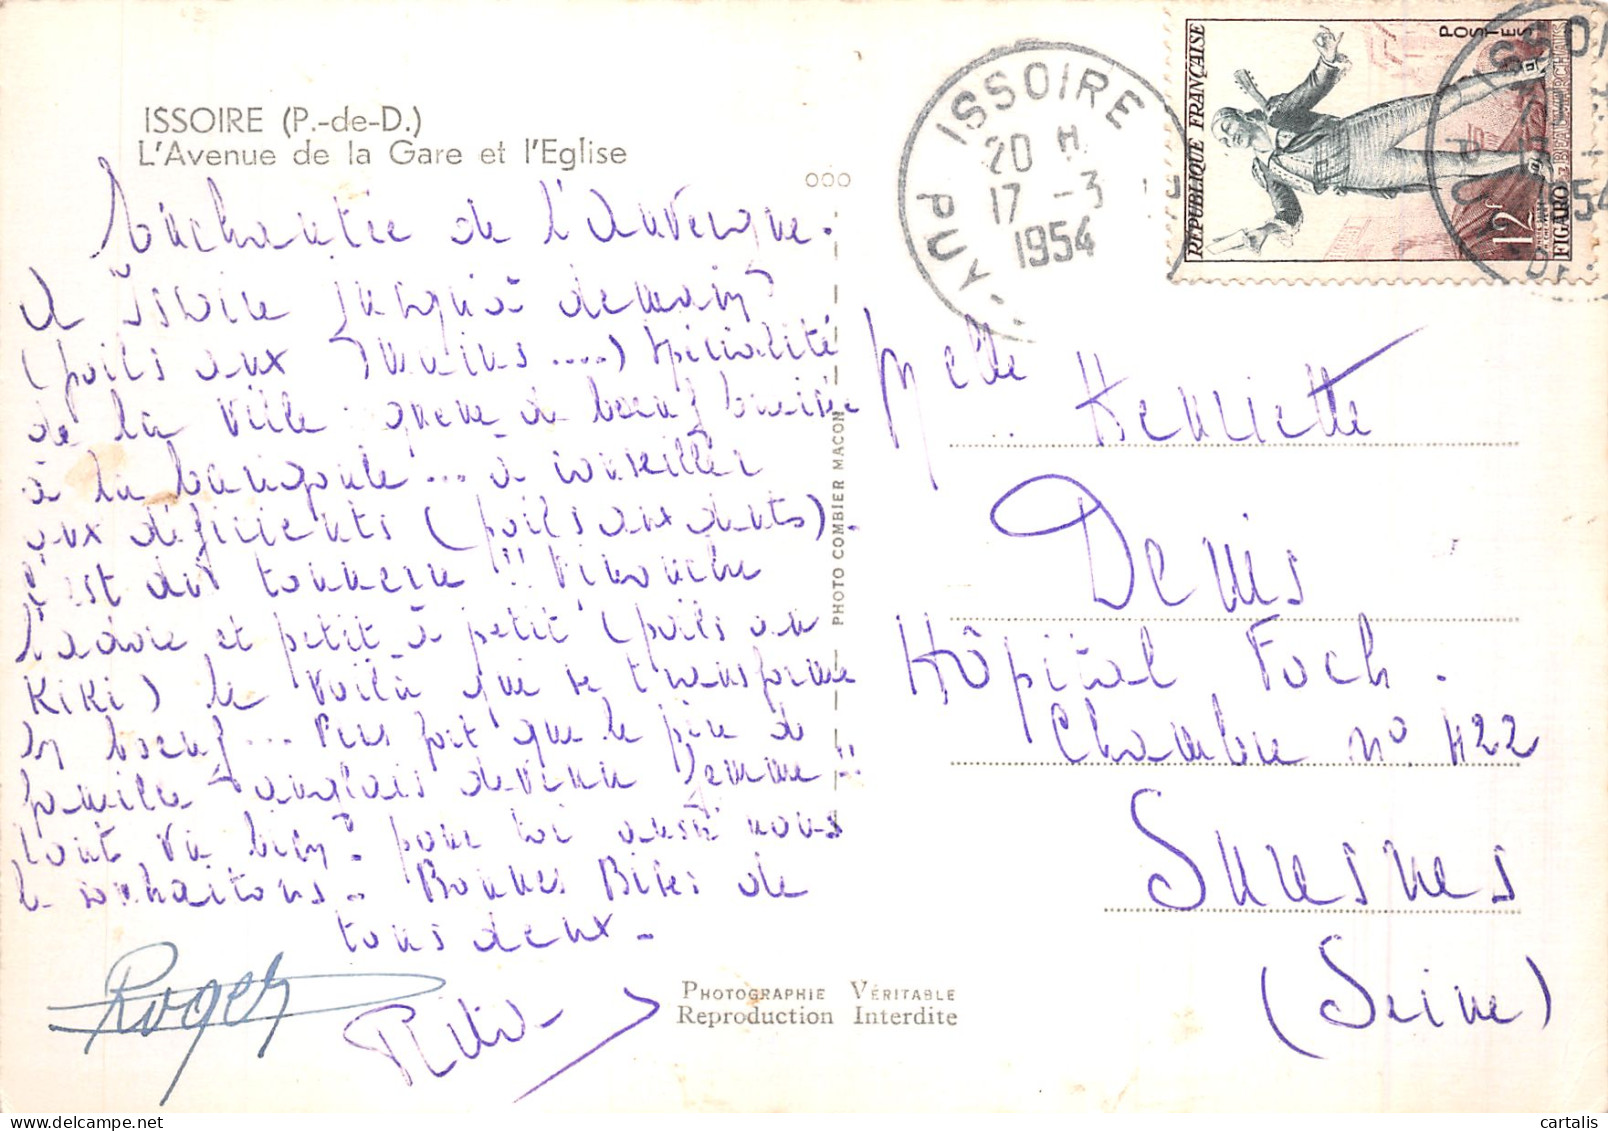 ISSOIRE (P.-de-D.)
L'Avenue de la Gare et l'Eglise
Enchantée de l'Auvergne.
A Issoire jusqu'à demain
(poils aux mains....) spécialité
de la ville : queue de boeuf braisée
à la barigoule... à conseiller
aux déficients (poils aux dents).
C'est du tonnerre !!
l'adore et petit à petit (poils au
KiKi) le voilà que se transforme
en boeuf... Plus fort que le père de
famille anglais devenu femme !!
Tout va bien? pour toi aussi nous
le souhaitons. Bonnes Bises de
tous deux.
Roger
PHOTO COMBIER MACON
PHOTOGRAPHIE VÉRITABLE
Reproduction Interdite
ISSOIRE
20 H
17 -3
1954
PUY
REPUBLIQUE FRANÇAISE
POSTES
12F
FIGARO
BEAUMARCHAIS
ISSOIRE
1954
PUY
Melle Henriette
Denis
Hôpital Foch.
Chambre n° 422
Suresnes
(Seine)
cartalis